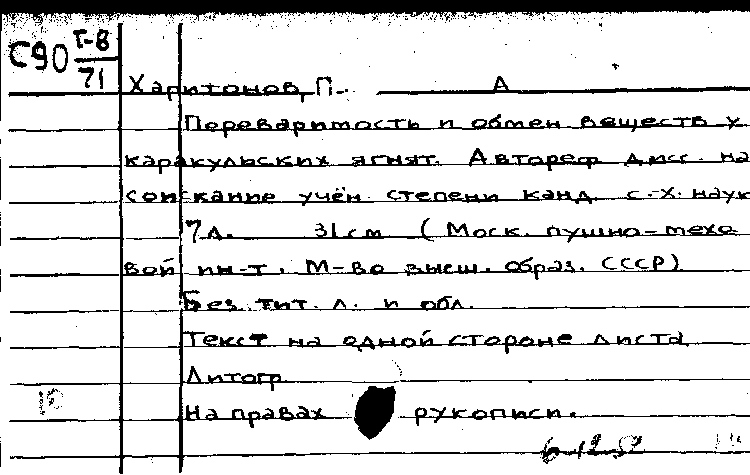 С90 Т-8
71
Харитонов, П. А
Переваримость и обмен веществ у
каракульских ягнят. Автореф дисс. на
соискание учён. степени канд. с.-х. наук
7л. 31см (Моск. пушно-мехо
вой ин-т. М-во высш. образ. СССР)
Без тит. л. и обл.
Текст на одной стороне листа
Литогр
На правах рукописи.